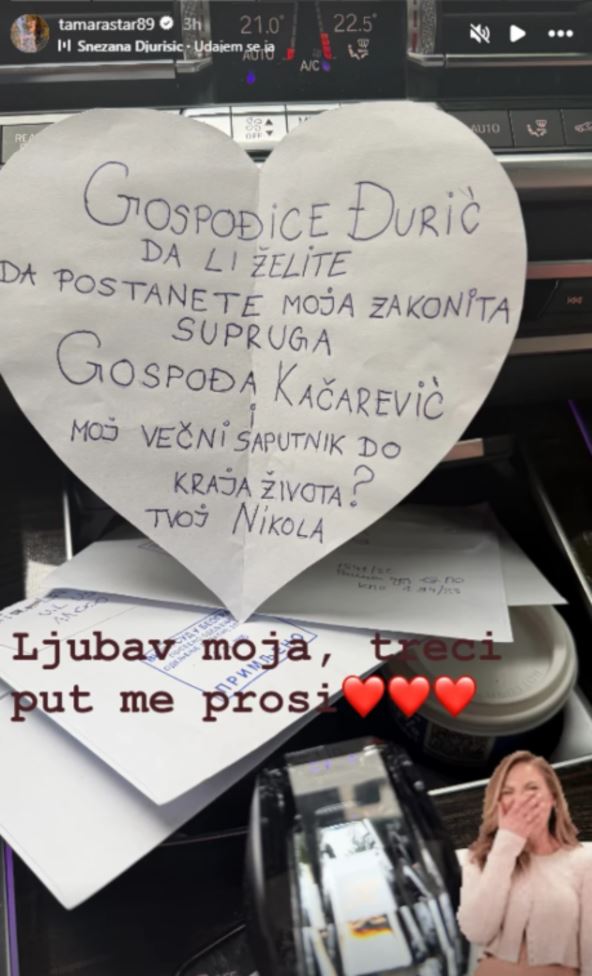 tamarastar89 3h
Snezana Djurisic • Udajem se ja
21.0° 22.5°
AUTO
A/C
OFF
AUTO
GOSPOĐICE ĐURIĆ
DA LI ŽELITE
DA POSTANETE MOJA ZAKONITA
SUPRUGA
GOSPOĐA KAČAREVIĆ
I
MOJ VEČNI SAPUTNIK DO
KRAJA ŽIVOTA?
TVOJ NIKOLA
Ljubav moja, treci
put me prosi❤️❤️❤️
ПРИМЉЕНО